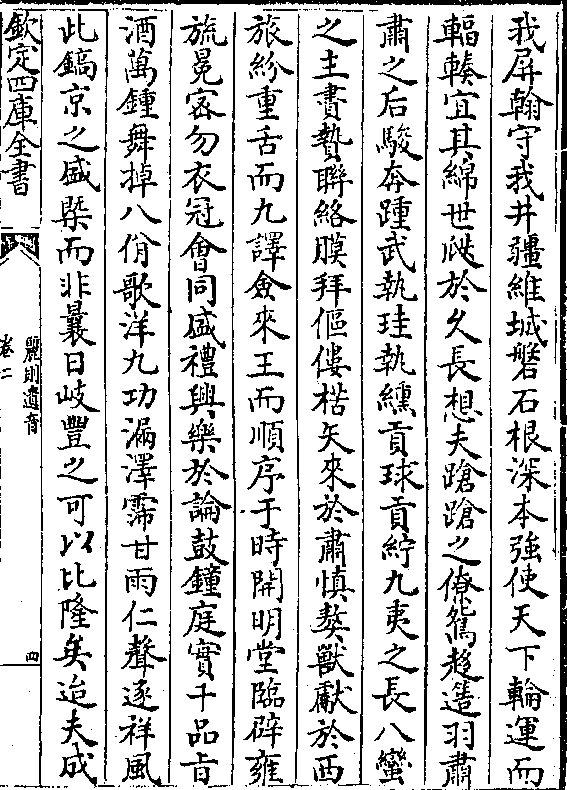 我屏翰守我井疆維城磐石根深本強使天下輪運而
輻輳宜其綿世歴於久長想夫蹌蹌之僚鴛趍鷺羽肅
肅之后駿奔踵武執珪執纁貢球貢紵九夷之長八蠻
之主賮贄聯絡膜拜傴僂楛矢來於肅慎獒獸獻於西
旅紛重舌而九譯僉來王而順序于時開明堂臨辟雍
旒冕宻勿衣冠會同盛禮興樂於論鼓鐘庭實千品㫖
酒萬鍾舞掉八佾歌洋九功漏澤霈甘雨仁聲逐祥風
此鎬京之盛槩而非曩日岐豐之可以比隆矣迨夫成
欽定四庫全書
麗則遺音
卷二
四